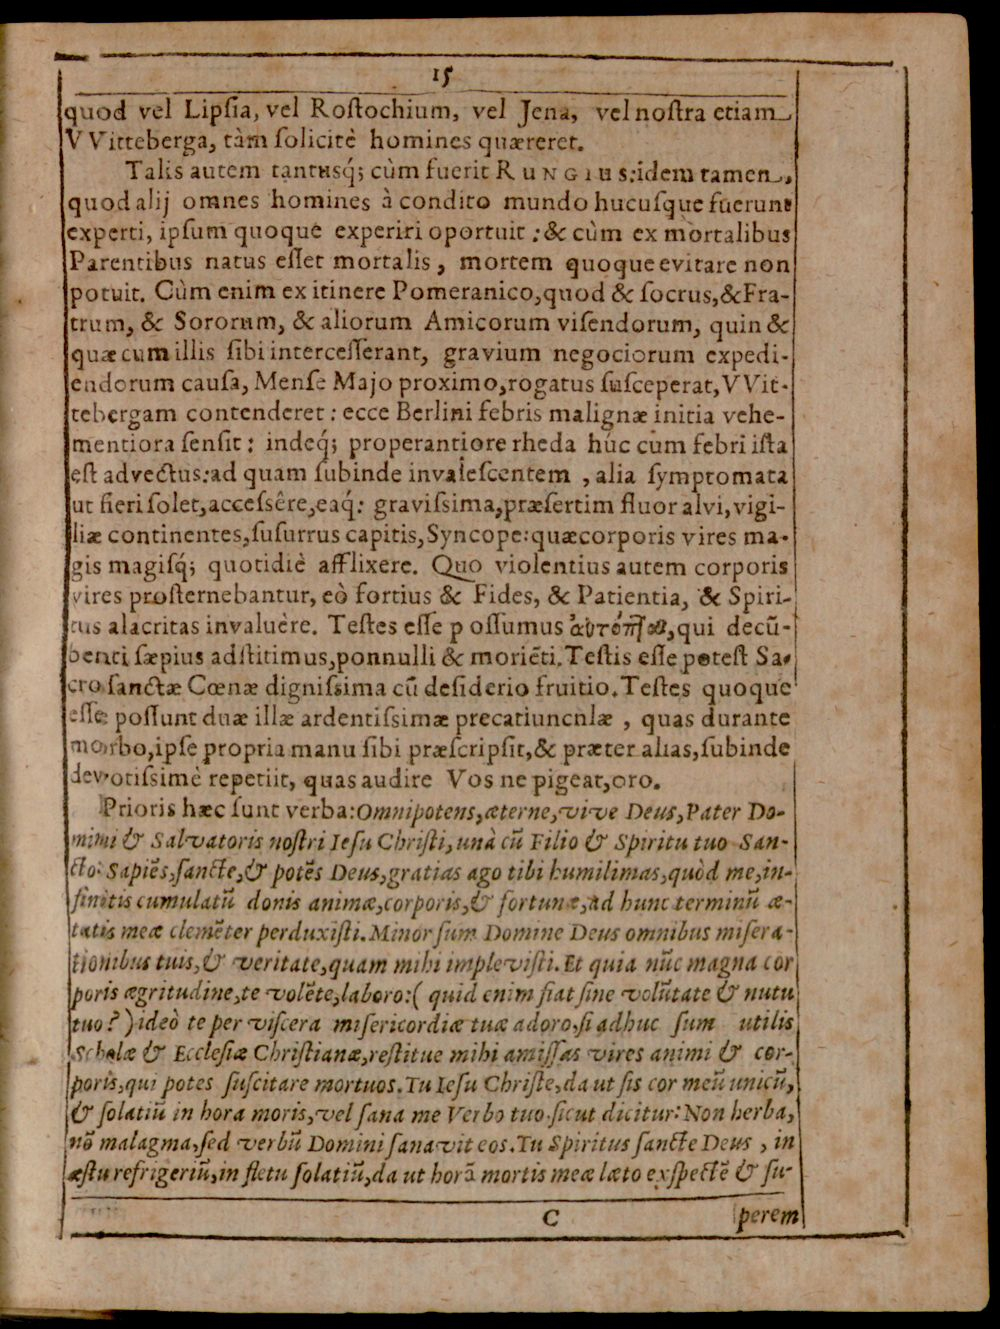 15
quod vel Lipſia, vel Roſtochium, vel Jena, vel noſtra etiam
VVitteberga, tàm ſolicitè homines quæreret.
Talis autem tantusq́; cùm fuerit RUNGIUS: idem tamen,
quod alij omnes homines à condito mundo hucuſque fuerunt
experti, ipſum quoque experiri oportuit: & cùm ex mortalibus
Parentibus natus eſſet mortalis, mortem quoque evitare non
potuit. Cùm enim ex itinere Pomeranico, quod & ſocrus, & Fra-
trum, & Sororum, & aliorum Amicorum viſendorum, quin &
quæ cum illis ſibi interceſſerant, gravium negociorum expedi-
endorum cauſa, Menſe Majo proximo, rogatus ſuſceperat, VVit-
tebergam contenderet: ecce Berlini febris malignæ initia vehe-
mentiora ſenſit: indeq́; properantiore rheda hûc cum febri iſta
eſt advectus: ad quam ſubinde invaleſcentem, alia ſymptomata
ut fieri ſolet, acceſsêre, eaq́: graviſsima, præſertim fluor alvi, vigi-
liæ continentes, ſuſurrus capitis, Syncope: quæ corporis vires ma-
gis magiſq́; quotidiè afflixere. Quo violentius autem corporis
vires proſternebantur, eò fortius & Fides, & Patientia, & Spiri-
tus alacritas invaluère. Teſtes eſſe poſſumus αὐτόπται, qui decū-
benti ſæpius adſtitimus, ponnulli & moriēti. Teſtis eſſe poteſt Sa-
cro ſanctæ Cœnæ digniſsima cū deſiderio fruitio. Teſtes quoque
eſſe poſſunt duæ illæ ardentiſsimæ precatiuncnlæ, quas durante
morbo, ipſe propria manu ſibi præſcripſit, & præter alias, ſubinde
devotiſsimè repetiit, quas audire Vos ne pigeat, oro.
Prioris hæc ſunt verba: Omnipotens, æterne, vive Deus, Pater Do-
mini & Salvatoris noſtri Ieſu Chriſti, unà cū Filio & Spiritu tuo San-
cto: Sapiēs, ſancte, & potēs Deus, gratias ago tibi humilimas, quòd me, in-
finitis cumulatū donis animæ, corporis, & fortunæ, ad hunc terminū æ-
tatis meæ clemēter perduxiſti. Minor ſum Domine Deus omnibus miſera-
tionibus tuis, & veritate, quam mihi impleviſti. Et quia nūc magna cor
poris ægritudine, te volēte, laboro: (quid enim fiat ſine volūtate & nutu
tuo?) ideò te per viſcera miſericordiæ tuæ adoro, ſi adhuc ſum utilis
Scholæ & Eccleſiæ Chriſtianæ, reſtitue mihi amiſſas vires animi & cor-
poris, qui potes ſuſcitare mortuos. Tu Ieſu Chriſte, da ut ſis cor meū unicū,
& ſolatiū in hora moris, vel ſana me Verbo tuo. ſicut dicitur: Non herba,
nō malagma, ſed verbū Domini ſanavit eos. Tu Spiritus ſancte Deus, in
æſtu refrigeriū, in fletu ſolatiū, da ut horā mortis meæ læto exſpectē & ſu-
C
perem